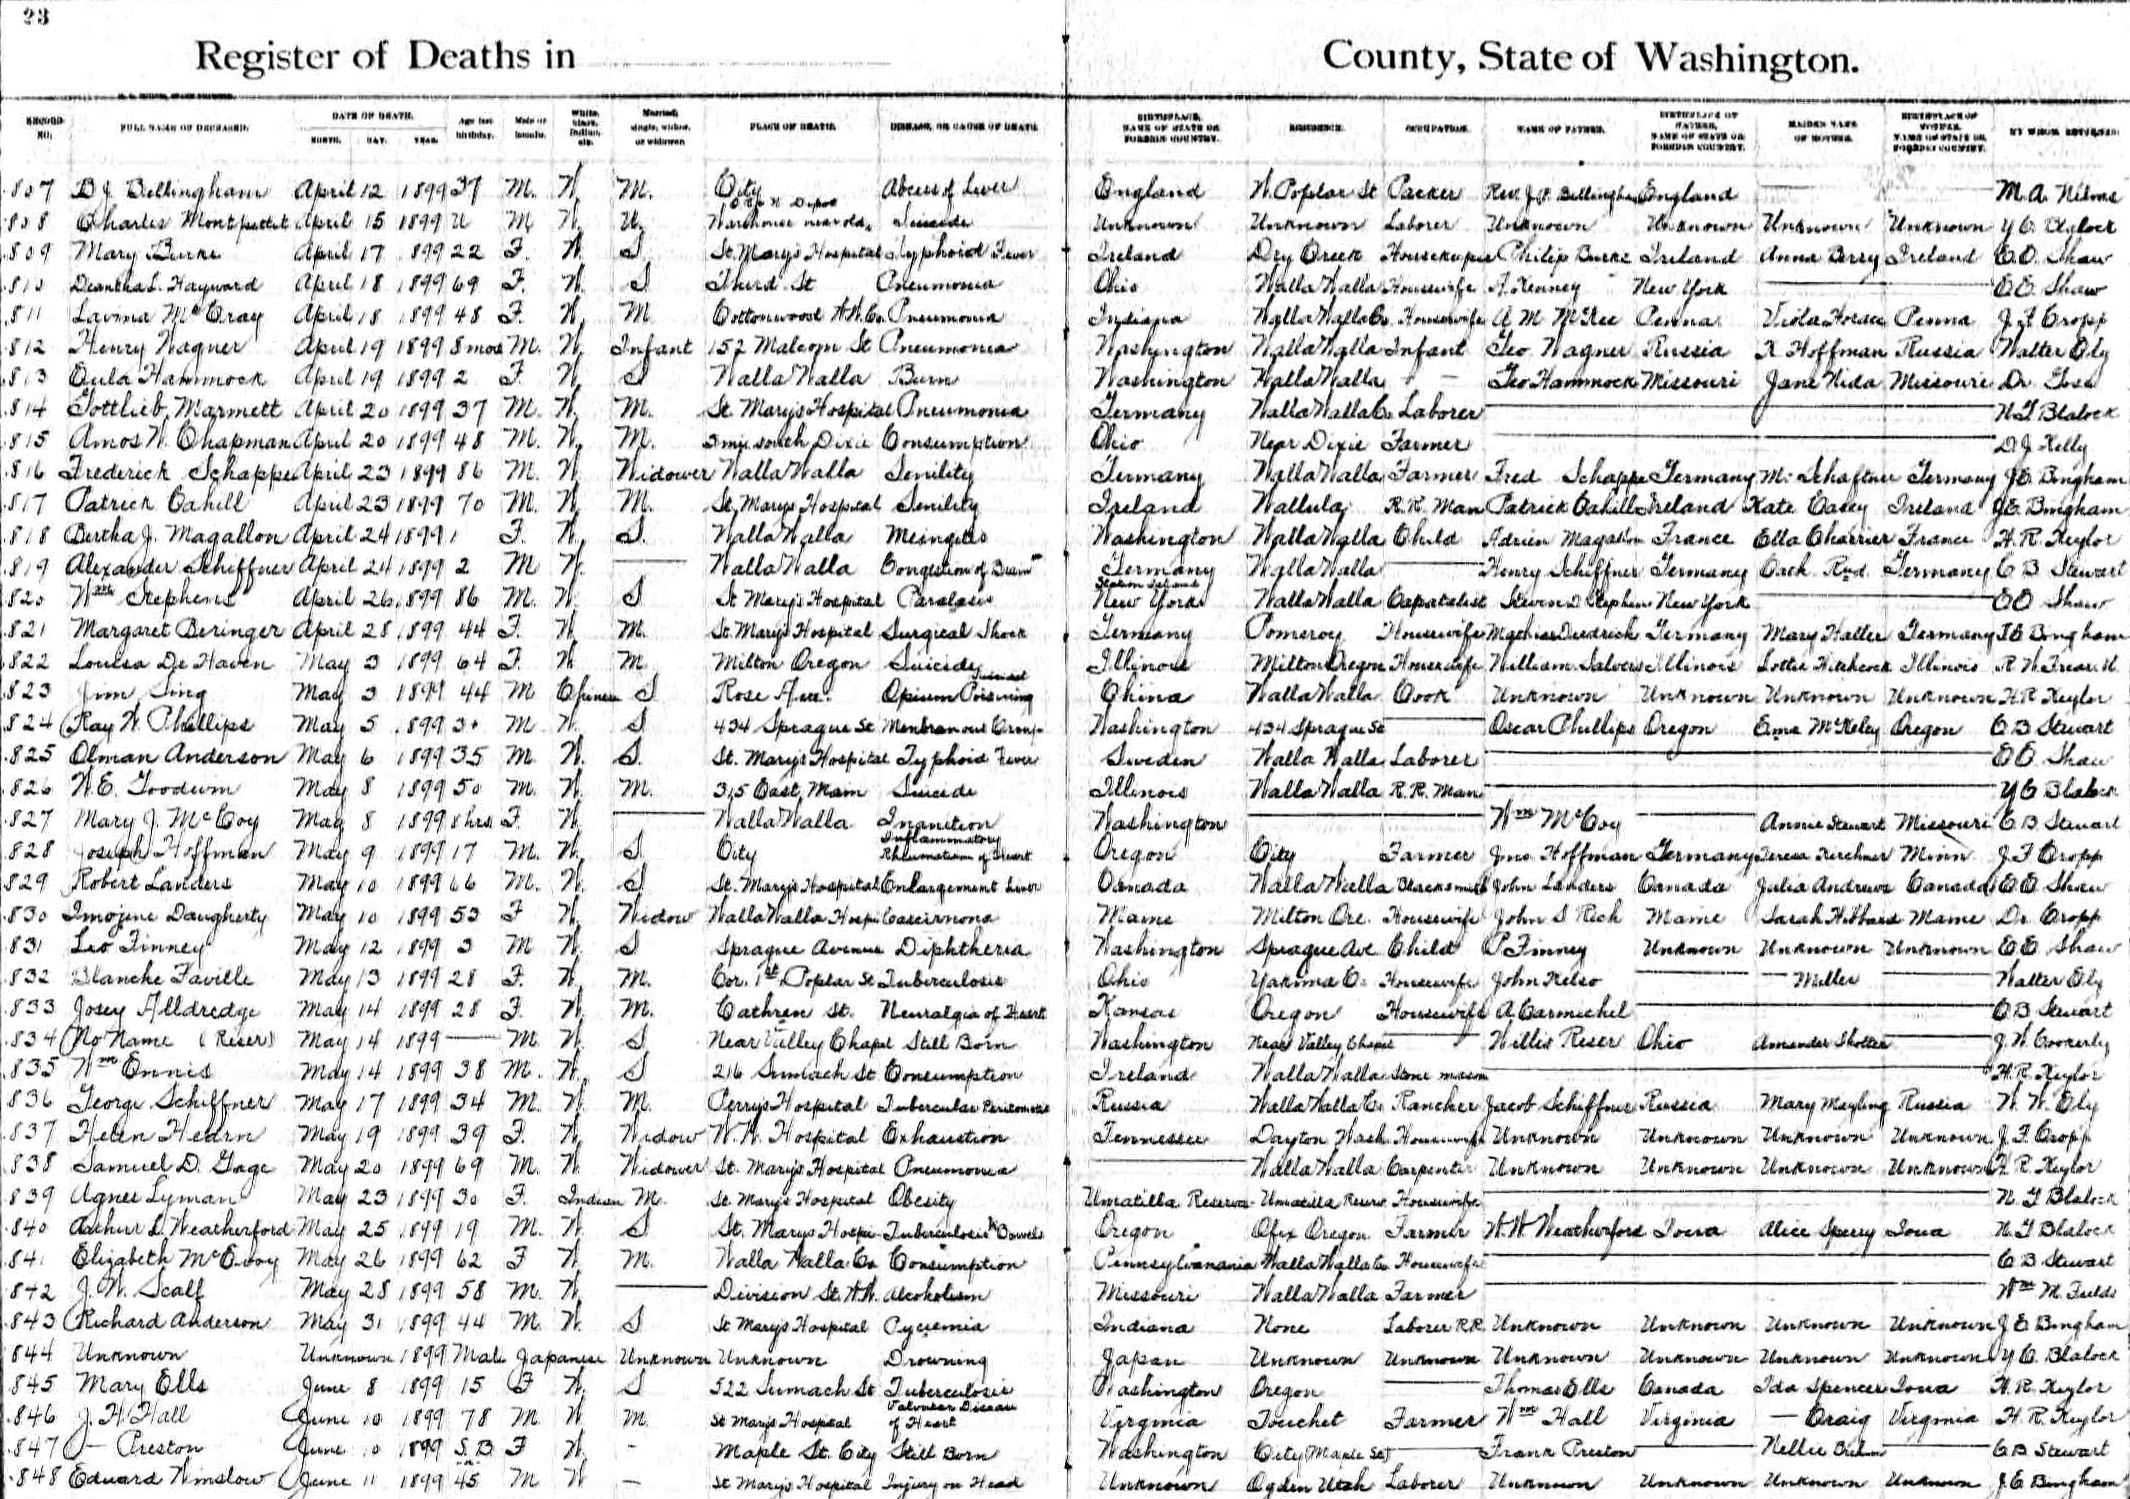 23
Register of Deaths in
County, State of Washington.
RECORD NO. FULL NAME OF DECEASED. DATE OF DEATH. MONTH. DAY. YEAR. Age last birthday. Male or female. White, black, Indian, etc. Married, single, widow, or widower PLACE OF DEATH. DISEASE, OR CAUSE OF DEATH. BIRTHPLACE, NAME OF STATE OR FOREIGN COUNTRY. RESIDENCE. OCCUPATION. NAME OF FATHER. BIRTHPLACE OF FATHER, NAME OF STATE OR FOREIGN COUNTRY. MAIDEN NAME OF MOTHER. BIRTHPLACE OF MOTHER, NAME OF STATE OR FOREIGN COUNTRY. BY WHOM RETURNED.
807 B J Bellingham April 12 1899 37 M. W. M. City Abcess of Liver England W. Poplar St Packer Rev. J. Bellingham England M. A.
808 Charles April 15 1899 U M W. U. Warehouse near old Depot Suicide Unknown Unknown Laborer Unknown Unknown Unknown Unknown Y C Blalock
809 Mary Burke April 17 1899 22 F. W. S St. Mary's Hospital Typhoid Fever Ireland Dry Creek Housekeeper Philip Burke Ireland Anna Berry Ireland E E. Shaw
810 L. Hayward April 18 1899 69 F. W. S Third St Pneumonia Ohio Walla Walla Housewife A. Kenney New York E E. Shaw
811 Lavina McCray April 18 1899 48 F. W. M. Cottonwood W. W. Co. Pneumonia Indiana Walla Walla Co. Housewife A M McKee Penna. Viola Horace Penna J. F Cropp
812 Henry Wagner April 19 1899 8 mos M. W. Infant 152 Malcom St Pneumonia Washington Walla Walla Infant Geo Wagner Russia K Hoffman Russia Walter Ely
813 Eula Hammock April 19 1899 2 F. W. S Walla Walla Burn Washington Walla Walla Geo Hammock Missouri Jane Nida Missouri Dr. Goss
814 Gottlieb Marmett April 20 1899 37 M. W. M. St. Mary's Hospital Pneumonia Germany Walla Walla Co Laborer N G Blalock
815 Amos W. Chapman April 20 1899 48 M. W. M. 3 mi. south Dixie Consumption Ohio Near Dixie Farmer D. J. Kelly
816 Frederick Schappe April 23 1899 86 M. W Widower Walla Walla Senility Germany Walla Walla Farmer Fred Schappe Germany M. Schaftner Germany J E Bingham
817 Patrick Cahill April 23 1899 70 M. W. M. St. Mary's Hospital Senility Ireland Wallula R. R. Man Patrick Cahill Ireland Kate Casey Ireland J E. Bingham
818 Bertha J. Magallon April 24 1899 1 F. W. S. Walla Walla Meingitis Washington Walla Walla Child Adrien Magallon France Ella Charrier France H. R. Keylor
819 Alexander Schiffner April 24 1899 2 M W. Walla Walla Congestion of Brain Germany Walla Walla Henry Schiffner Germany Germany C B Stewart
820 Wm Stephens April 26 1899 86 M. W. S St Mary's Hospital Paralasis Staten Island New York Walla Walla Capatalist Steven D Stephens New York E E Shaw
821 Margaret Beringer April 28 1899 44 F. W. M. St. Mary's Hospital Surgical Shock Germany Pomeroy Housewife Mathias Diedrick Germany Mary Halter Germany J E Bingham
822 Louisa De Haven May 3 1899 64 F. W M. Milton Oregon Suicide Illinois Milton Oregon Housewife William Salvers Illinois Lottie Hitchcock Illinois
823 Jim Sing May 3 1899 44 M Chinese S Rose Ave. Opium Poisoning Suicidal China Walla Walla Cook Unknown Unknown Unknown Unknown H. R. Keylor
824 Ray W Phillips May 5 1899 M W. S 434 Sprague St Membranous Croup Washington 434 Sprague St Oscar Phillips Oregon Oregon C B Stewart
825 Olman Anderson May 6 1899 35 M. W. S. St. Mary's Hospital Typhoid Fever Sweden Walla Walla Laborer E E. Shaw
826 W. E. Goodwin May 8 1899 50 M. W. M. 315 East Main Suicide Illinois Walla Walla R. R. Man Y C Blalock
827 Mary J. McCoy May 8 1899 8 hrs F. W. Walla Walla Inanition Washington Wm McCoy Annie Stewart Missouri C B Stewart
828 Joseph Hoffman May 9 1899 17 M. W. S City Inflammatory Rheumatism of Heart Oregon City Farmer Jno. Hoffman Germany Teresa Kirchner Minn J. F Cropp
829 Robert Landers May 10 1899 66 M. W. S St. Mary's Hospital Enlargement Liver Canada Walla Walla Blacksmith John Landers Canada Julia Andrews Canada E E Shaw
830 Imojene Daugherty May 10 1899 53 F W. Widow Walla Walla Hospi Cascirnona Maine Milton Ore. Housewife John S Rich Maine Sarah Hibbard Maine Dr. Cropp
831 Leo Finney May 12 1899 3 M W. S Sprague Avenue Diphtheria Washington Sprague Ave Child P Finney Unknown Unknown Unknown E E Shaw
832 Blanche Faville May 13 1899 28 F. W. M. Cor. 1st Poplar St Tuberculosis Ohio Yakima Co. Housewife John Kelso Miller Walter Ely
833 Josey Alldredge May 14 1899 28 F. W. M. Cathren St. Neuralgia of Heart Kansas Oregon Housewife A Carmichel C B Stewart
834 No Name (Reser) May 14 1899 M. W. S Near Valley Chapel Still Born Washington Near Valley Chapel Willis Reser Ohio Amander J. W. Cookerly
835 Wm Ennis May 14 1899 38 M. W. S 216 Sumach St Consumption Ireland Walla Walla Stone mason H. R. Keylor
836 George Schiffner May 17 1899 34 M. W. M. Perry's Hospital Tubercular Peritonitis Russia Walla Walla Co. Rancher Jacob Schiffner Russia Mary Meyling Russia W. W. Ely
837 Helen Hearn May 19 1899 39 F. W. Widow W. W. Hospital Exhaustion Tennessee Dayton Wash. Housewife Unknown Unknown Unknown Unknown J. F. Cropp
838 Samuel D. Gage May 20 1899 69 M. W. Widower St. Mary's Hospital Pneumonia Walla Walla Carpenter Unknown Unknown Unknown Unknown H. R. Keylor
839 Agnes Lyman May 23 1899 30 F. Indian M. St. Mary's Hospital Obesity Umatilla Reserva- Umatilla Reserv. Housewife N. G Blalock
840 Aathur L. Weatherford May 25 1899 19 M. W. S St. Marys Hospi- Tuberculosis Bowels Oregon Olex Oregon Farmer W. W Weatherford Iowa Alice Sperry Iowa N. G Blalock
841 Elizabeth McEvoy May 26 1899 62 F W M. Walla Walla Co Consumption Pennsylvanania Walla Walla Co Housewife C B Stewart
842 J. W. Scalf May 28 1899 58 M. W. Division St. W. W. Alcoholism Missouri Walla Walla Farmer Wm M. Fields
843 Richard Anderson May 31 1899 44 M. W. S St Mary's Hospital Pycemia Indiana None Laborer R.R. Unknown Unknown Unknown Unknown J E Bingham
844 Unknown Unknown 1899 Male Japanese Unknown Unknown Drowning Japan Unknown Unknown Unknown Unknown Unknown Unknown Y C. Blalock
845 Mary Ells June 8 1899 15 F W. S 522 Sumach St Tuberculosis Washington Oregon Thomas Ells Canada Ida Spencer Iowa H. R. Keylor
846 J. H. Hall June 10 1899 78 M. W M. St Mary's Hospital Valvular Disease of Heart Virginia Touchet Farmer Wm Hall Virginia — Craig Virginia H. R. Keylor
847 — Preston June 10 1899 S. B F W. - Maple St. City Still Born Washington City Maple St Frank Preston Nellie C B Stewart
848 Edward Winslow June 11 1899 45 M W — St Mary's Hospital Injury on Head Unknown Ogden Utah Laborer Unknown Unknown Unknown Unknown J. E Bingham